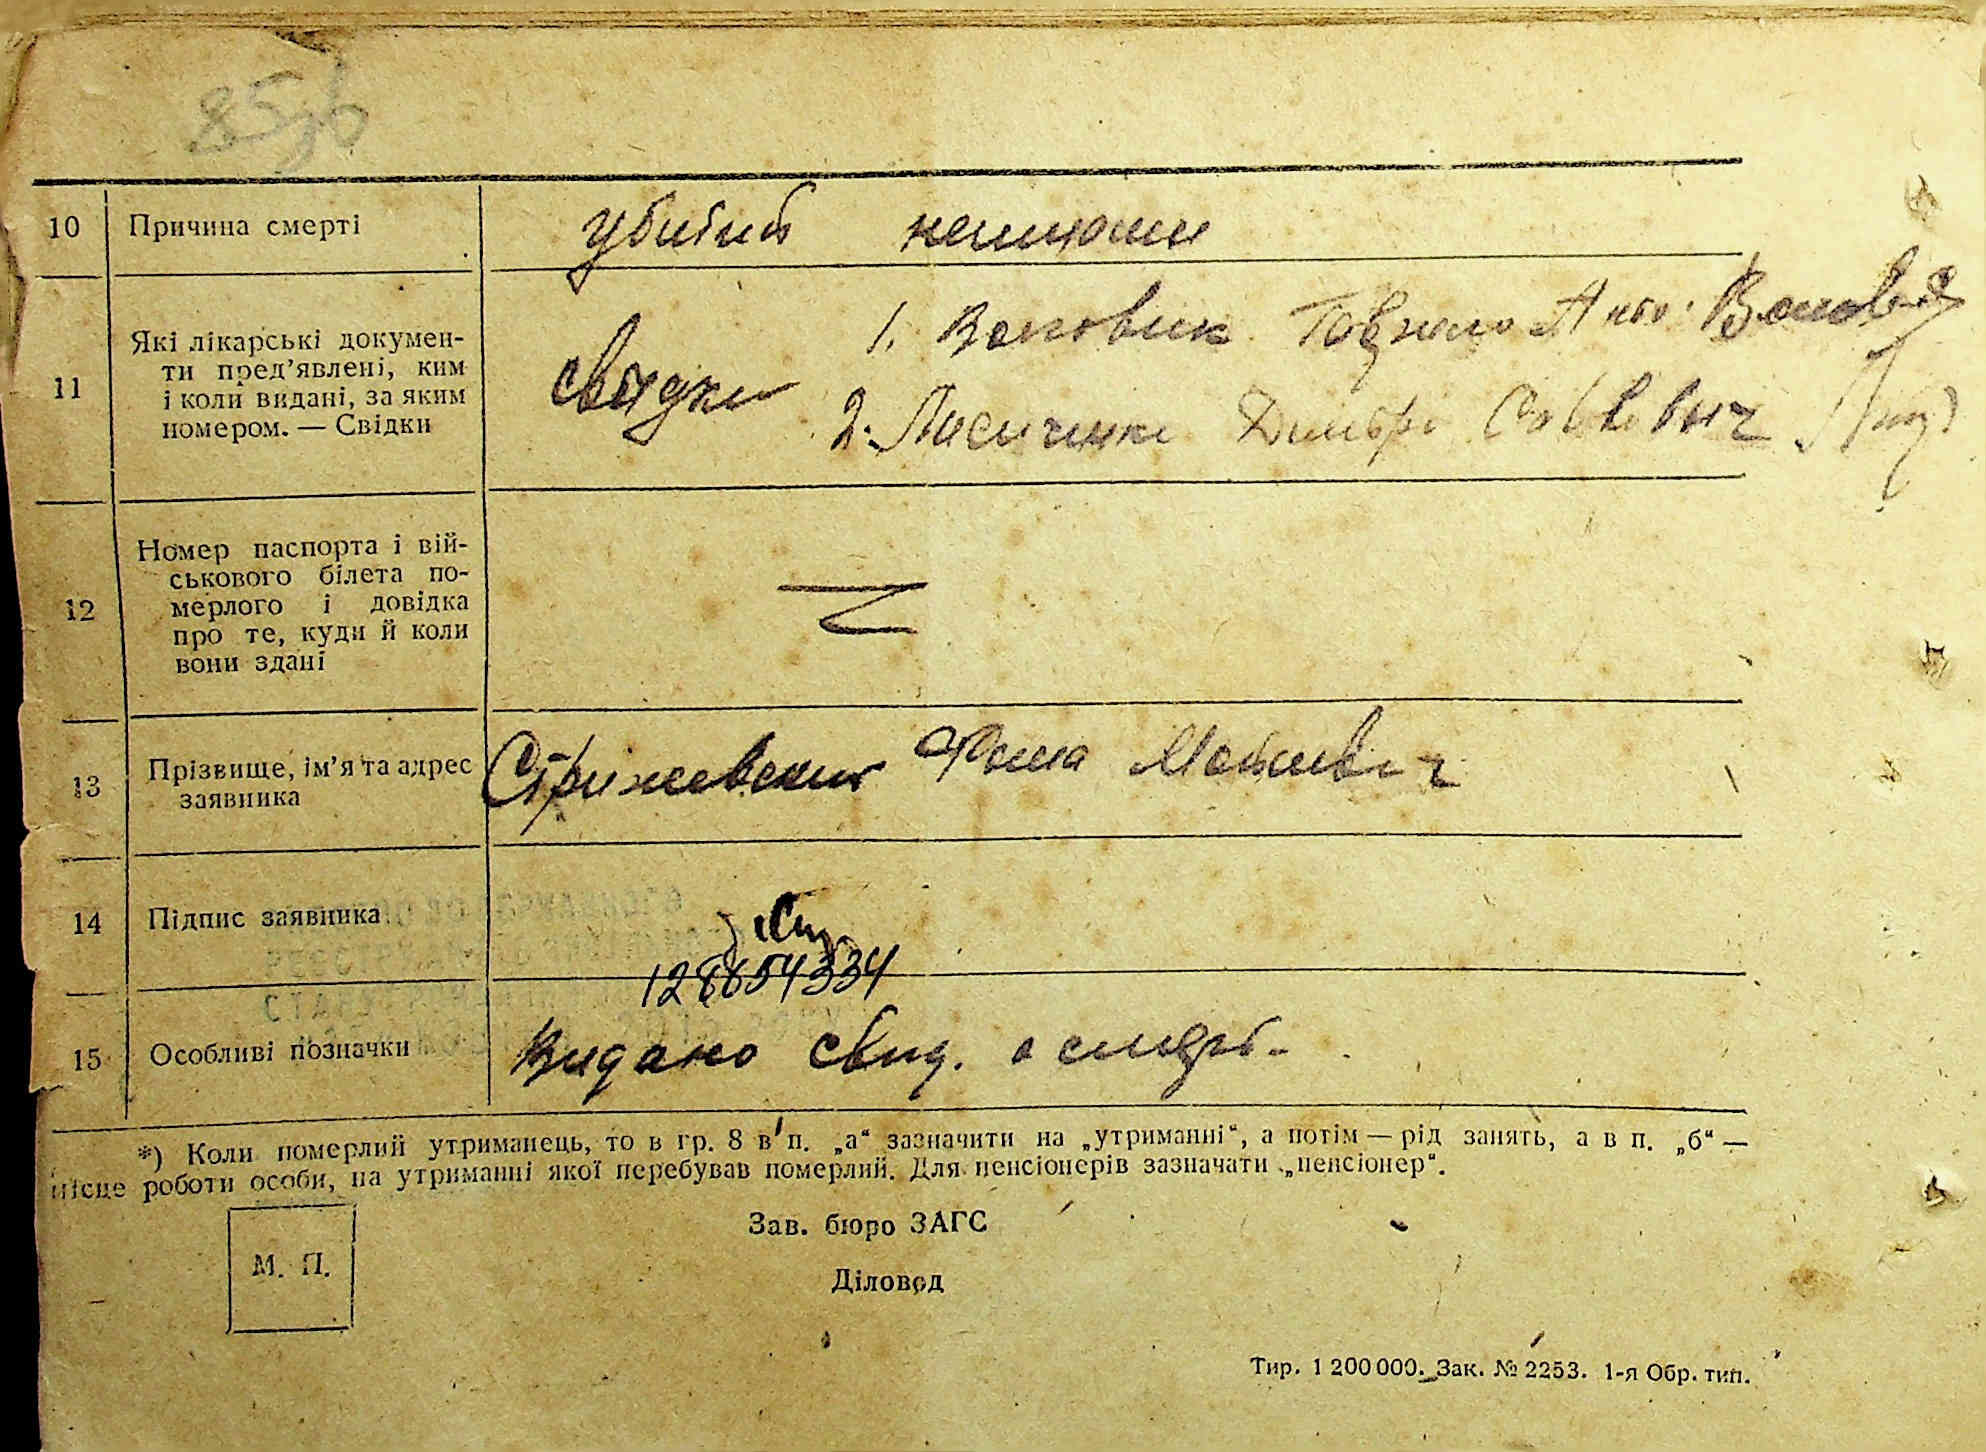 85зв
10 Причина смерті убитий
11 Які лікарські докумен-
ти пред’явлені, ким
і коли видані, за яким
номером. — Свідки
свідки 1. Вановик Гаврило
2. Лисиченко Дмитро Саввович
12 Номер паспорта і вій-
ськового білета по-
мерлого і довідка
про те, куди й коли
вони здані
13 Прізвище, ім’я та адрес
заявника
Стрижевский Фома Матвієвич
14 Підпис заявника
15 Особливі позначки
Видано свид. о смерті
*) Коли померлий утриманець, то в гр. 8 в п. „а“ зазначити на „утриманні“, а потім — рід занять, а в п. „б“ —
місце роботи особи, на утриманні якої перебував померлий. Для пенсіонерів зазначати „пенсіонер“.
М. П.
Зав. бюро ЗАГС
Діловод
Тир. 1 200 000. Зак. № 2253. 1-я Обр. тип.